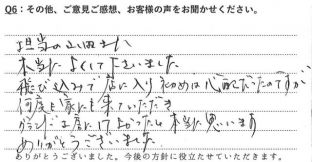 Q6：その他、ご意見ご感想、お客様の声をお聞かせください。
担当の山田さん
本当によくして下さいました
飛び込みで店に入り初めは心配だったのですが
何度も家にも来ていただき
グランド2店に行ってよかったと本当に思います
ありがとうございました
ありがとうございました。今後の方針に役立たせていただきます。